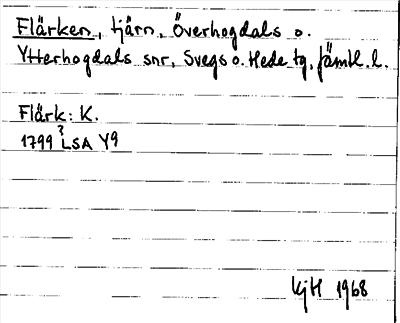 Flärken, tjärn, Överhogdals o.
Ytterhogdals snr, Svegs o. Hede tg, Jämtl. l.
Flärk: K.
1799 ? LSA Y9
KjH 1968